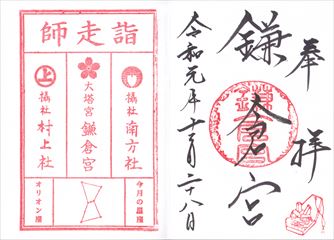 奉拝
鎌倉宮
令和元年十二月二十八日
師走詣
摂社 南方社
大塔宮 鎌倉宮
上
摂社 村上社
今月の星座
オリオン座